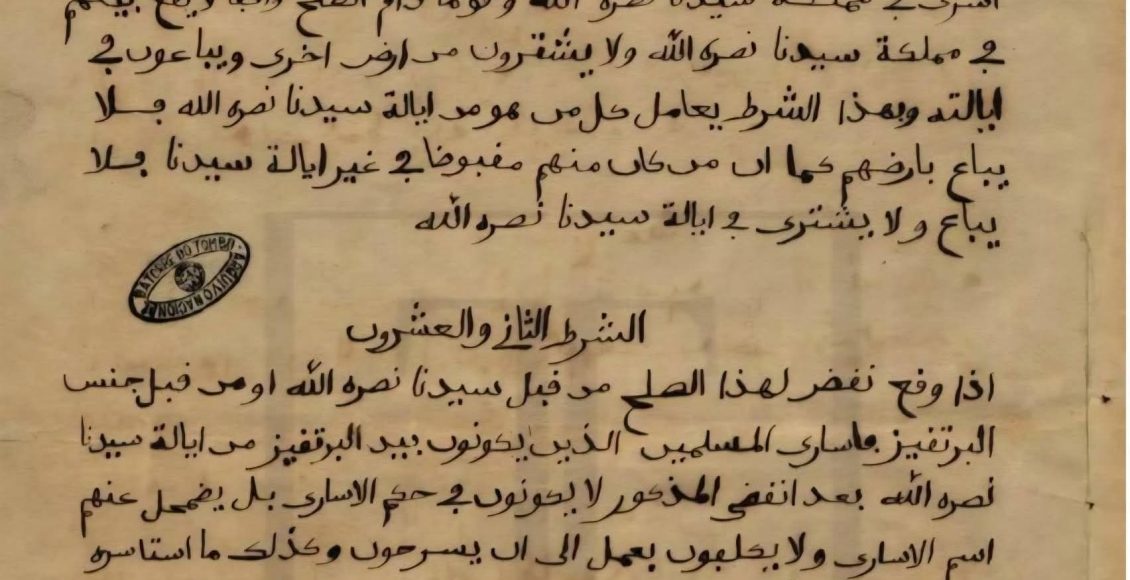 في مملكة سيدنا نصره الله ولا من ارض اخرى ويباعون في
ايالته وبهذا الشرط يعامل كل من هو من ايالة سيدنا نصره الله فلا
يباع بارضهم كما ان من كان منهم مقبوضا في غير ايالة سيدنا فلا
يباع ولا يشترى في ايالة سيدنا نصره الله
ARQUIVO NACIONAL DA TORRE DO TOMBO
الشرط الثاني والعشرون
اذا وقع نقض لهذا الصلح من قبل سيدنا نصره الله او من قبل جنس
البرتقيز فاسارى المسلمين الذين يكونون بيد البرتقيز من ايالة سيدنا
نصره الله بعد المذكور لا يكونون في حكم الاسارى بل يضمحل عنهم
اسم الاسارى ولا يكلفون بعمل الى ان يسرحون وكذلك ما استاسره